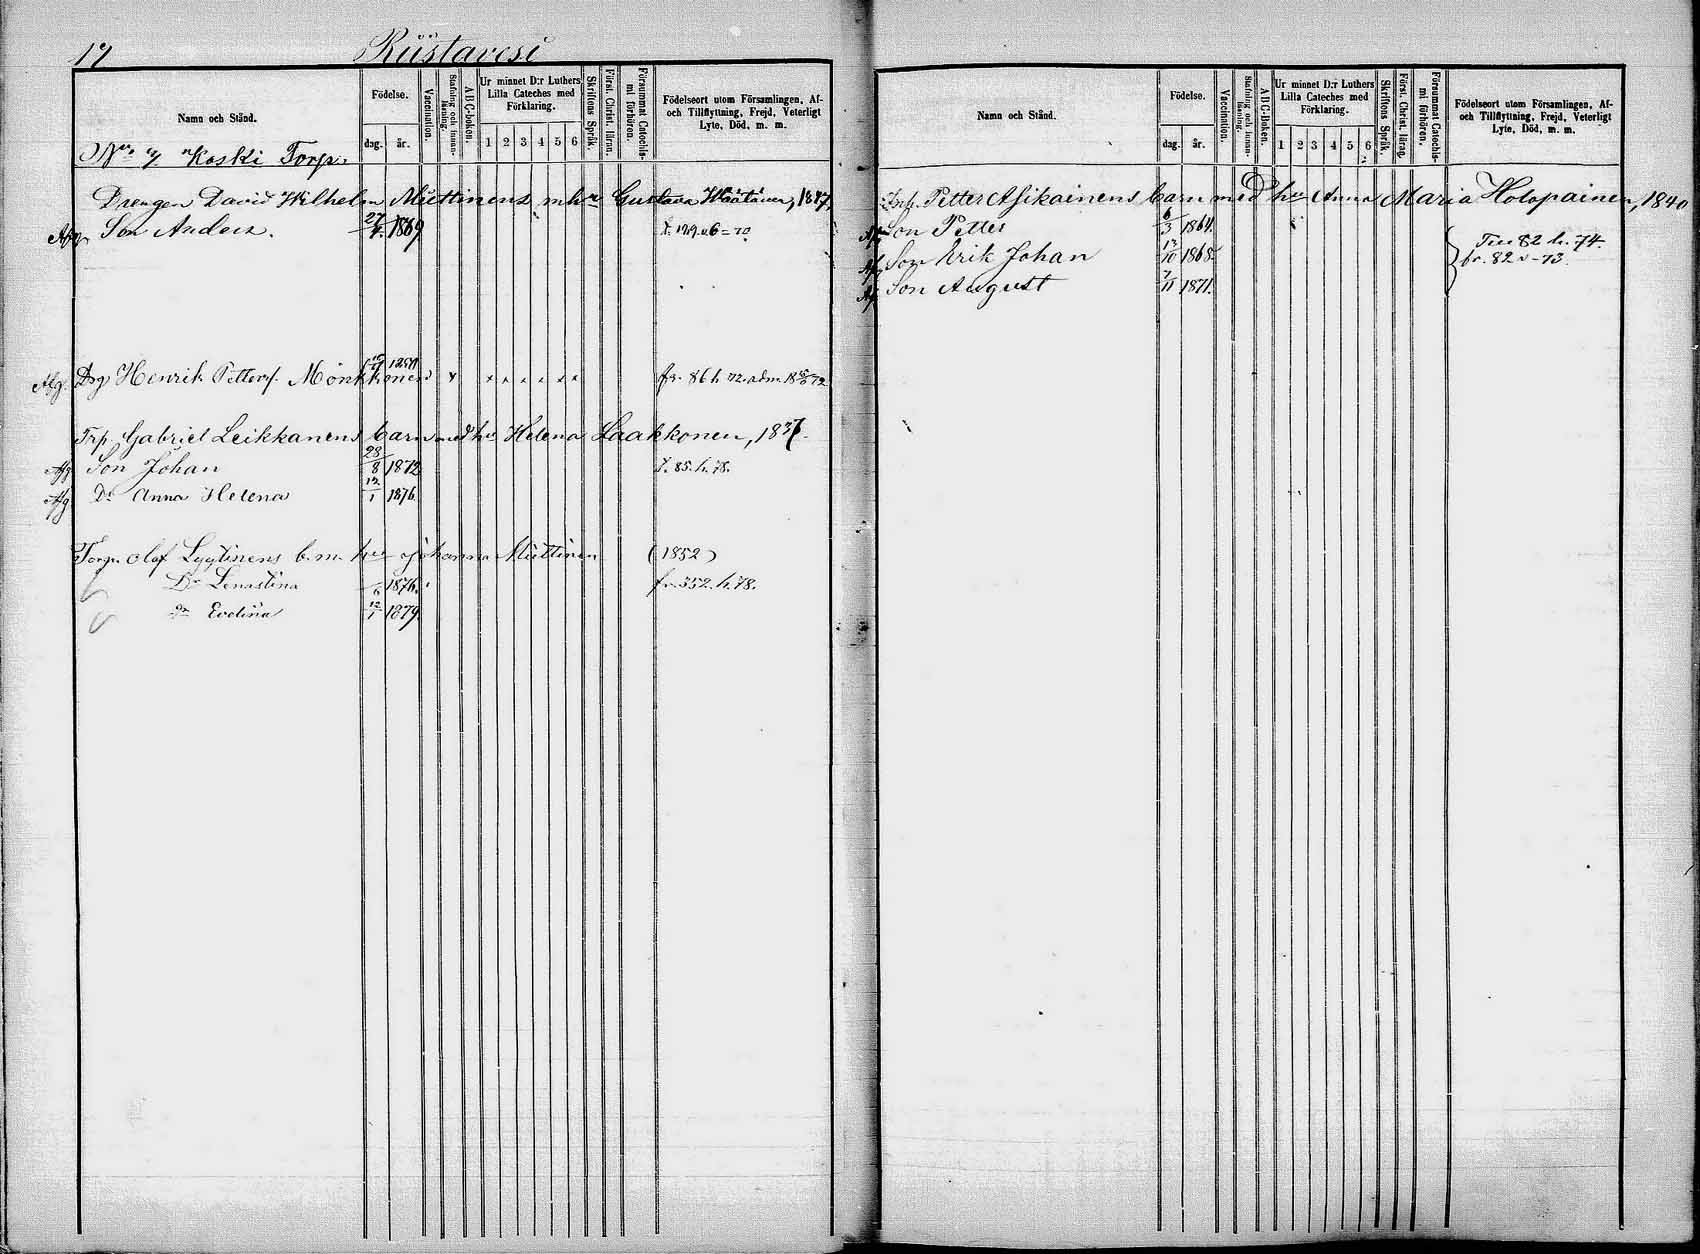 17 Riistavesi
Namn och Stånd.
Födelse.
dag. år.
Vaccination.
Stafning och innanläsning.
ABC-boken.
Ur minnet D:r Luthers
Lilla Cateches med
Förklaring.
1 2 3 4 5 6
Skriftens Språk.
Först. Christ. läran.
Försummat Catechismi förhören.
Födelseort utom Församlingen, Af-
och Tillflyttning, Frejd, Veterligt
Lyte, Död, m. m.
Koski Torp.
Drengen David Wilhelm Miettinens m hu Gustava Väätäinen, 1847,
Afg. Son Anders. 27/4. 1869
Afg. Drg Henrik Petters. Mönkkönen x x x x x x x fr. 86 h 72.
Trp. Gabriel Leikkanens barn med hu Helena Laakkonen, 1837.
Afg Son Johan 28/8 1872 t. 85. h. 78.
Afg Dr Anna Helena 12/1 1876.
Torp. Olof Lyytinens b. m. hu Johanna Miettinen (1852)
Dr Lenastina /6 1876. fr. 552. h. 78.
Dr Evelina 12/1 1879.
Namn och Stånd.
Födelse.
dag. år.
Vaccination.
Stafning och innanläsning.
ABC-Boken.
Ur minnet D:r Luthers
Lilla Cateches med
Förklaring.
1 2 3 4 5 6
Skriftens Språk.
Först. Christ. läran.
Försummat Catechismi förhören.
Födelseort utom Församlingen, Af-
och Tillflyttning, Frejd, Veterligt
Lyte, Död, m. m.
Trp. Petter Asikainens barn med hu Anna Maria Holopainen, 1840
Afg Son Petter 6/3 1864.
Till 82 h. 74.
Afg Son Erik Johan 13/10 1868.
fr. 82 v - 73.
Afg Son August 7/11 1871.